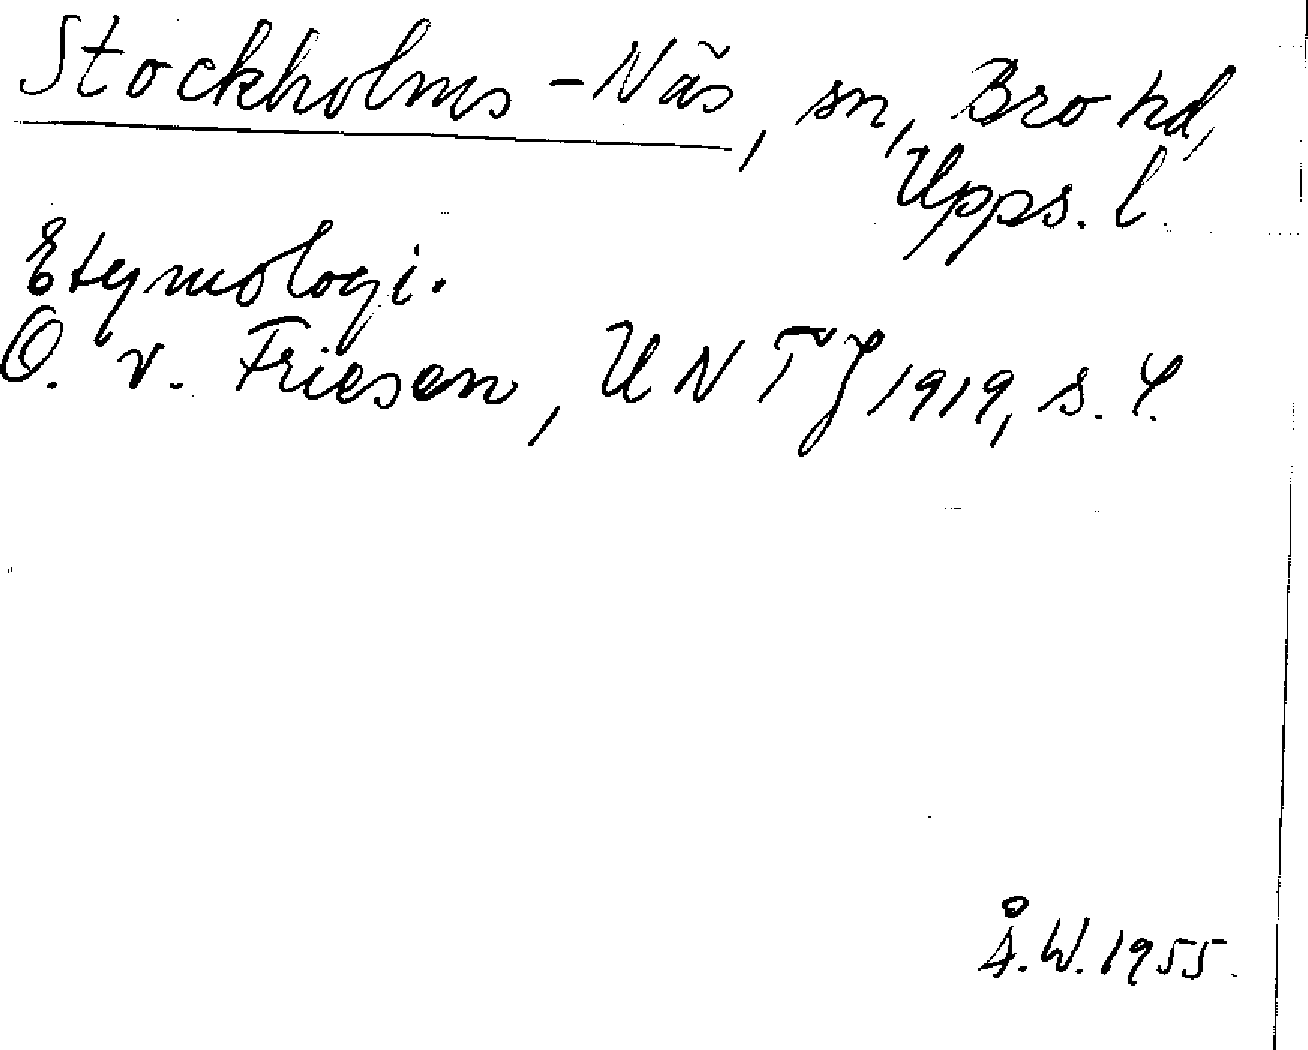 Stockholms-Näs, sn, Bro hd,
Upps. l.
Etymologi.
O. v. Friesen, UNTJ 1919, s. 4.
Å.W. 1955.